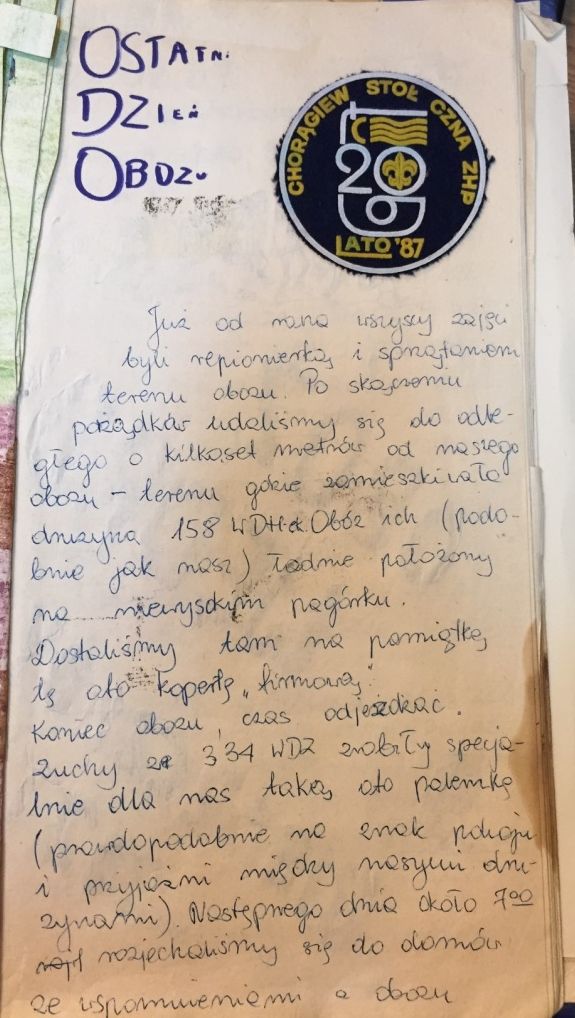 OSTATNI
DZIEŃ
OBOZU
CHORĄGIEW STOŁECZNA ZHP
209
LATO '87
Już od rana wszyscy zajęci
byli repionierką i sprzątaniem
terenu obozu. Po skączemu
pożądków udaliśmy się do odle-
głego o kilkaset metrów od naszego
obozu – terenu gdzie zamieszkiwała
drużyna 158 WDH. Obóz ich (podo-
bnie jak nasz) ładnie położony
na niewysokim pagórku.
Dostaliśmy tam na pamiątkę
tę oto kopertę „firmową".
Koniec obozu, czas odjeżdżać.
Zuchy ze 334 WDZ zrobiły specja-
lnie dla nas taką oto palemkę
(prawdopodobnie na znak pokoju
i przyjaźni między naszymi dru-
żynami). Następnego dnia około 7⁰⁰
rozjechaliśmy się do domów
ze wspomnieniami o obozu